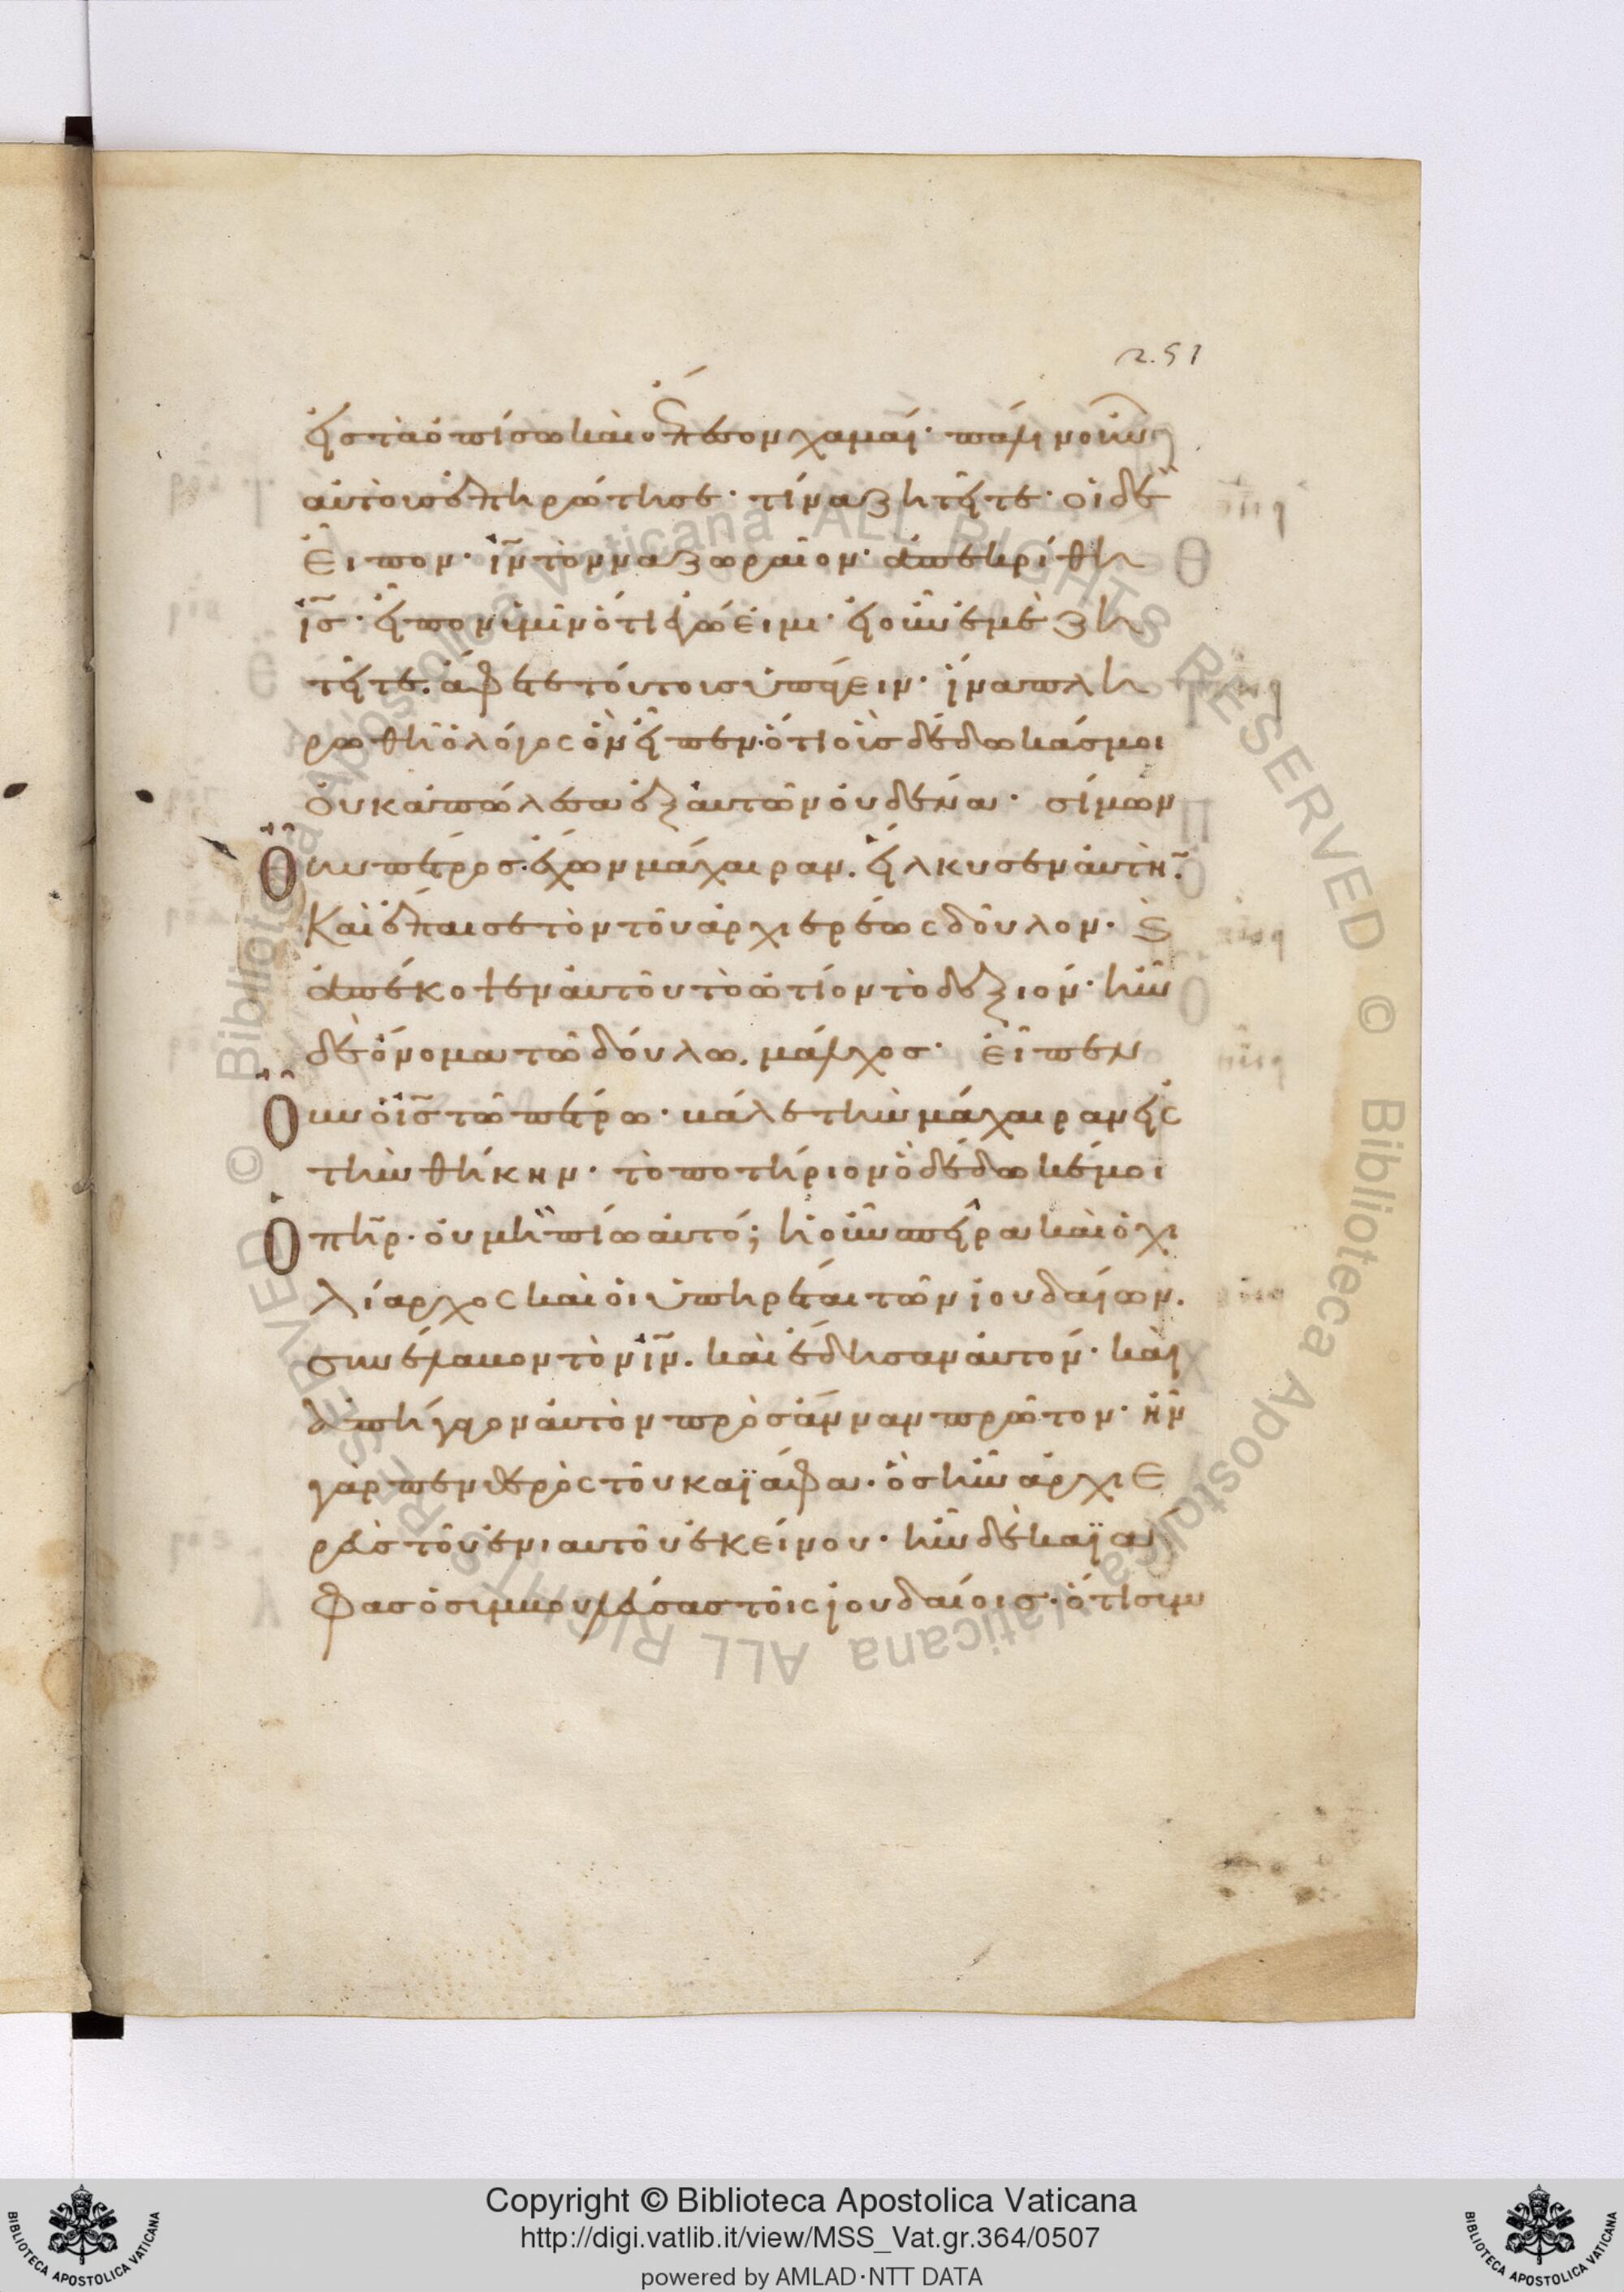 251
εἰς τὰ ὀπίσω καὶ ἔπεσον χαμαί· πάλιν οὖν
αὐτοὺς ἐπηρώτησε· τίνα ζητεῖτε· οἱ δὲ
εἶπον· ἰν̅ τὸν ναζωραῖον· ἀπεκρίθη
ἰς̅· εἶπον ὑμῖν ὅτι ἐγώ εἰμι· εἰ οὖν ἐμὲ ζη
τεῖτε. ἄφετε τούτους ὑπάγειν· ἵνα πλη
ρωθῆ ὁ λόγος ὃν εἶπεν· ὅτι οὓς δέδωκάς μοι
οὐκ ἀπώλεσα ἐξ αὐτῶν οὐδένα· σίμων
οὖν πέτρος· ἔχων μάχαιραν. εἵλκυσεν αὐτήν·
Καὶ ἔπαισε τὸν τοῦ ἀρχιερέως δοῦλον· ϗ
ἀπέκοψεν αὐτοῦ τὸ ὠτίον τὸ δεξιόν· ἦν
δὲ ὄνομα τῶ δούλω. μάλχος· εἶπεν
οὖν ὁ ἰς̅ τῶ πέτρω· βάλε τὴν μάχαιραν εἰς
τὴν θήκην· τὸ ποτήριον ὃ δέδωκέ μοι
ὁ πη̅ρ· οὐ μὴ πίω αὐτό; ἡ οὖν σπεῖρα καὶ ὁ χι
λίαρχος καὶ οἱ ὑπηρέται τῶν ἰουδαίων.
συνέλαβον τὸν ἰν̅. καὶ ἔδησαν αὐτόν· καὶ
ἀπήγαγον αὐτὸν πρὸς ἄνναν πρῶτον· ἦν
γὰρ πενθερὸς τοῦ καϊάφα· ὃς ἦν ἀρχιε
ρεὺς τοῦ ἐνιαυτοῦ ἐκείνου· ἦν δὲ καϊά
φας ὁ συμβουλεύσας τοῖς ἰουδαίοις· ὅτι συμ
© Biblioteca Apostolica Vaticana ALL RIGHTS RESERVED
© Biblioteca Apostolica Vaticana ALL RIGHTS RESERVED
BIBLIOTECA APOSTOLICA VATICANA
Copyright © Biblioteca Apostolica Vaticana
http://digi.vatlib.it/view/MSS_Vat.gr.364/0507
powered by AMLAD·NTT DATA
BIBLIOTECA APOSTOLICA VATICANA